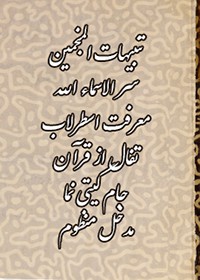 تنبیهات المنجمین
سر الاسماء الله
معرفت اسطرلاب
تفال از قرآن
جام گیتی نما
مدخل منظوم